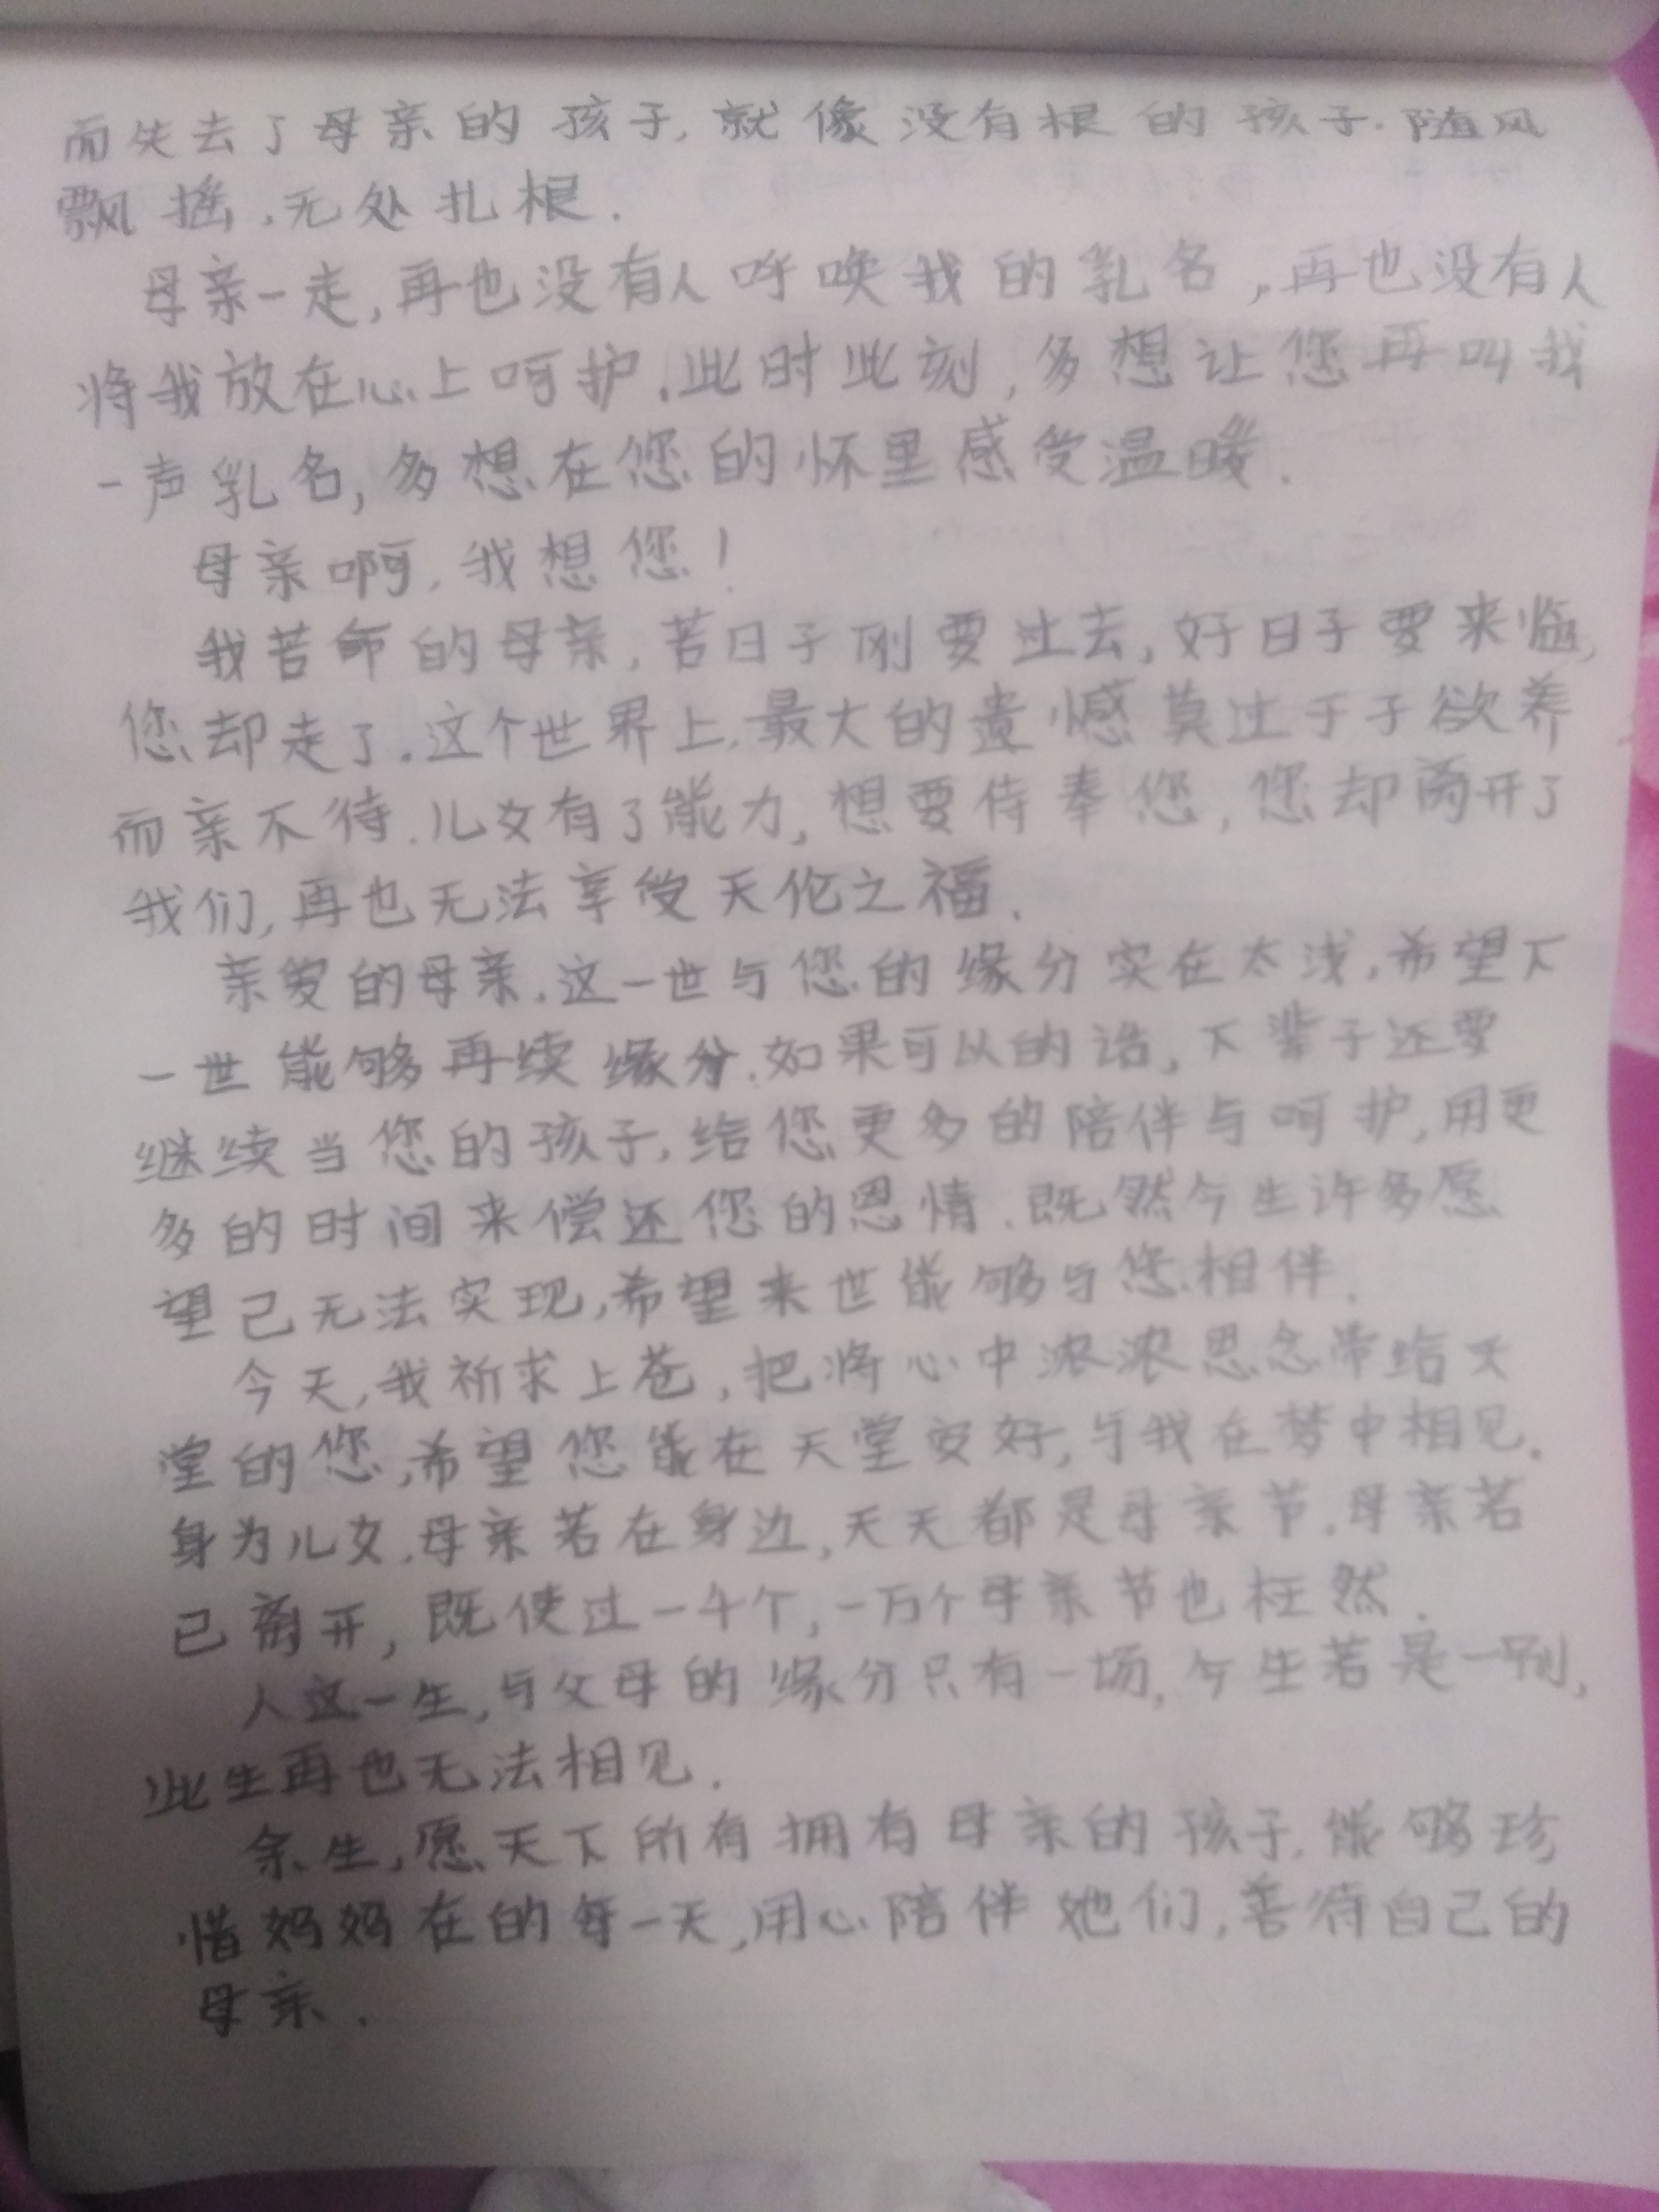 而失去了母亲的孩子,就像没有根的孩子.随风
飘摇,无处扎根.
母亲一走,再也没有人呼唤我的乳名,再也没有人
将我放在心上呵护.此时此刻,多想让您再叫我
一声乳名,多想在您的怀里感受温暖.
母亲啊,我想您!
我苦命的母亲,苦日子刚要过去,好日子要来临,
您却走了.这个世界上,最大的遗憾莫过于子欲养
而亲不待.儿女有了能力,想要侍奉您,您却离开了
我们,再也无法享受天伦之福.
亲爱的母亲,这一世与您的缘分实在太浅,希望下
一世能够再续缘分.如果可以的话,下辈子还要
继续当您的孩子,给您更多的陪伴与呵护,用更
多的时间来偿还您的恩情.既然今生许多愿
望已无法实现,希望来世能够与您相伴.
今天,我祈求上苍,把将心中浓浓思念带给天
堂的您,希望您能在天堂安好,与我在梦中相见.
身为儿女,母亲若在身边,天天都是母亲节.母亲若
已离开,既使过一千个,一万个母亲节也枉然.
人这一生,与父母的缘分只有一场,今生若是一别,
此生再也无法相见.
余生,愿天下所有拥有母亲的孩子,能够珍
惜妈妈在的每一天,用心陪伴她们,善待自己的
母亲.